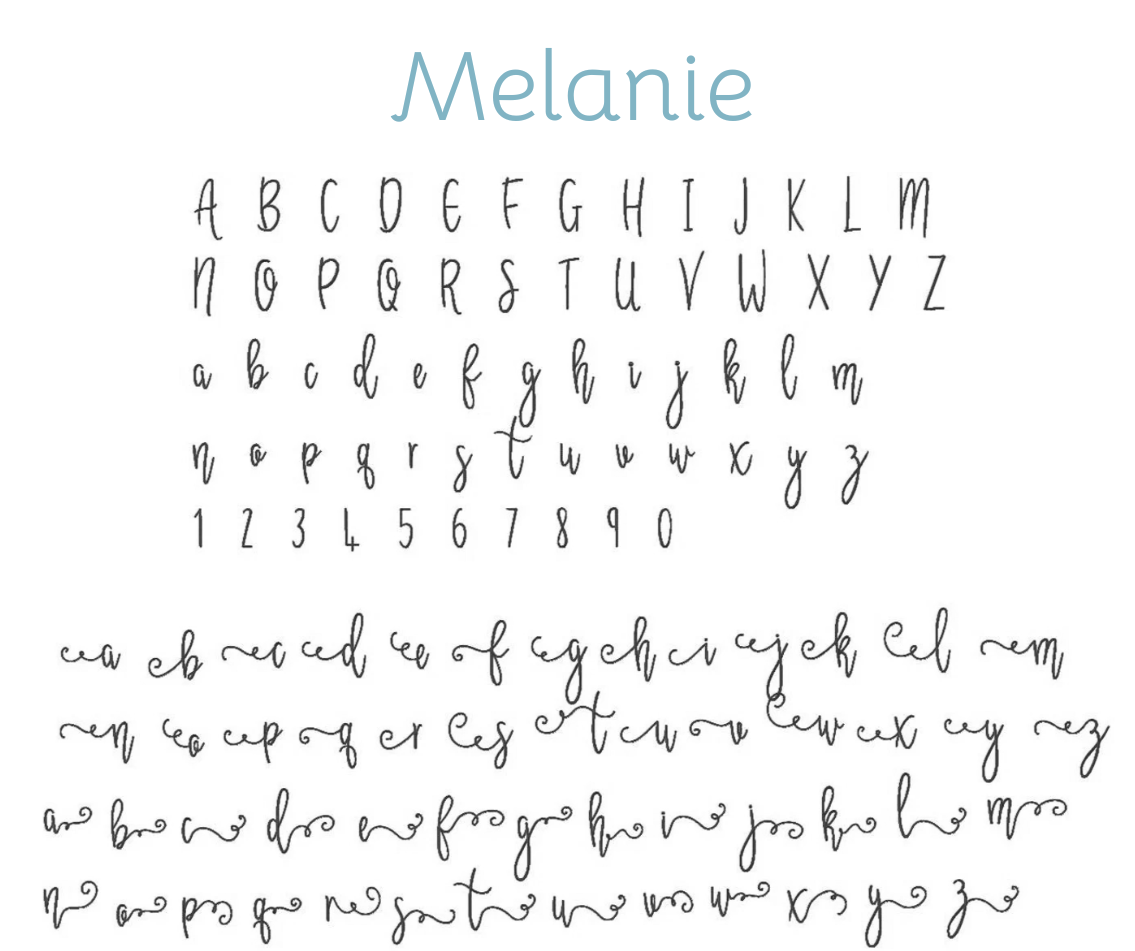 Melanie
A B C D E F G H I J K L M
N O P Q R S T U V W X Y Z
a b c d e f g h i j k l m
n o p q r s t u v w x y z
1 2 3 4 5 6 7 8 9 0
a b c d e f g h i j k l m
n o p q r s t u v w x y z
a b c d e f g h i j k l m
n o p q r s t u v w x y z